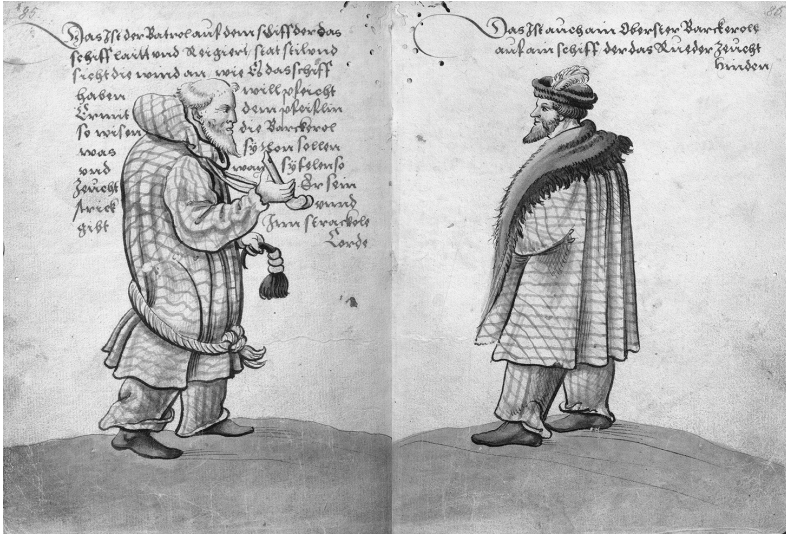 85
Das Ist der Batrol auf dem schiff der das
schiff laitt und Reigiert, stat stil und
sicht die wind an, wie Er das schiff
haben will pfeicht
Er mit dem pfeiflin
so wisen die Barckerol
was sy ton sollen
und wan sy felen so
Zeucht Er sein
strick und
gibt Inn strackele
Corde
86
Das Ist auch ain Oberster Barckerole
auf ain schiff der das Rueder Zeucht
hinden